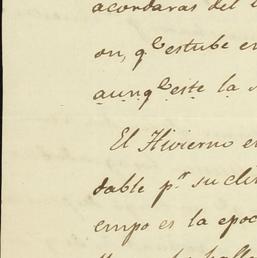 acordaras del
on, q.e estube en
aunq.e este la
El Hivierno e
dable p.r su cli
empo es la epoc